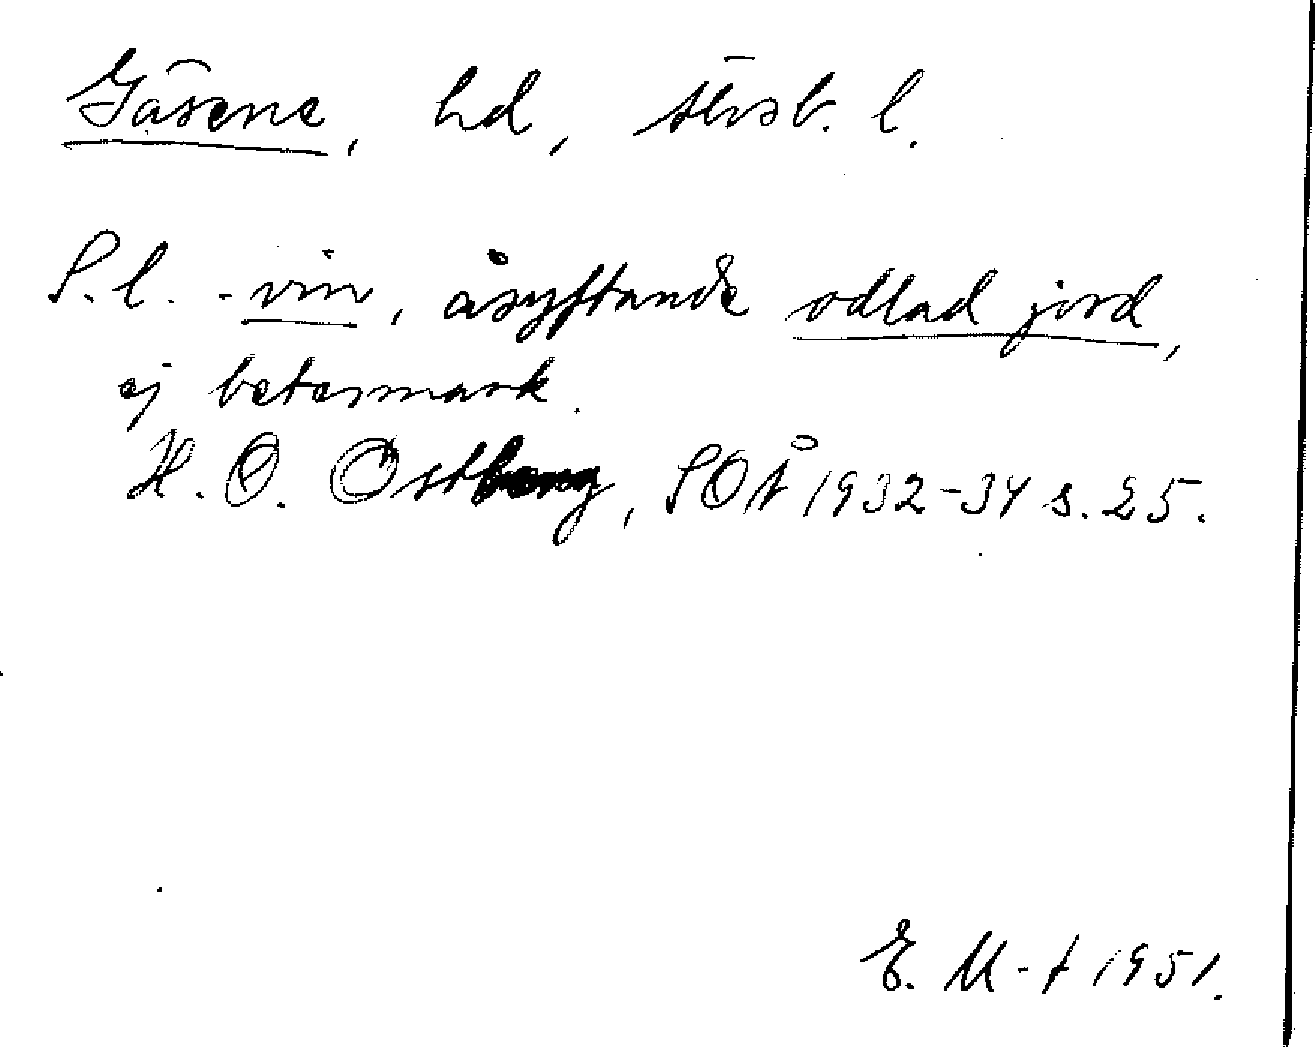 Gäsene, hd, Älvsb. l.
S.l. -vin, åsyftande odlad jord,
ej betesmark.
H. Ö. Östberg, SOÅ 1932-34 s. 25.
E. M-t 1951.